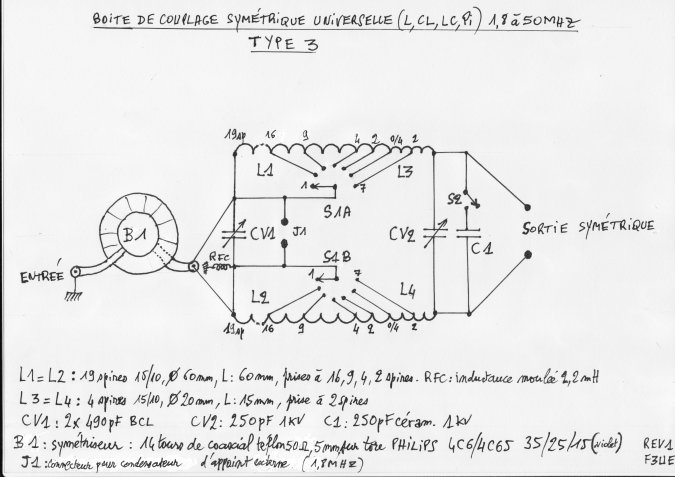 BOITE DE COUPLAGE SYMÉTRIQUE UNIVERSELLE (L, CL, LC, Pi) 1,8 à 50 MHZ
TYPE 3
19sp 16 9 4 2 0/4 2
L1 L3
1 7
S1A
B1
CV1 J1 CV2 C1 S2
SORTIE SYMÉTRIQUE
RFC
S1B
ENTREÉ
1 7
L2 L4
19sp 16 9 4 2 0/4 2
L1=L2 : 19 spires 15/10, Ø 60mm, L: 60mm, prises à 16, 9, 4, 2 spires. RFC: inductance moulée 2,2mH
L3=L4: 4 spires 15/10, Ø20mm, L:15mm, prise à 2 spires
CV1: 2x 490pF BCL CV2: 250pF 1KV C1: 250pF céram. 1kV
B1: symétriseur: 14 tours de coaxial teflon 50Ω, 5mm, sur tore PHILIPS 4C6/4C65 35/25/15 (violet) REV1
J1: connecteur pour condensateur d'appoint externe (1,8MHZ) F3UE